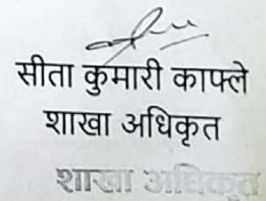 सीता कुमारी काफ्ले
शाखा अधिकृत
शाखा अधिकृत